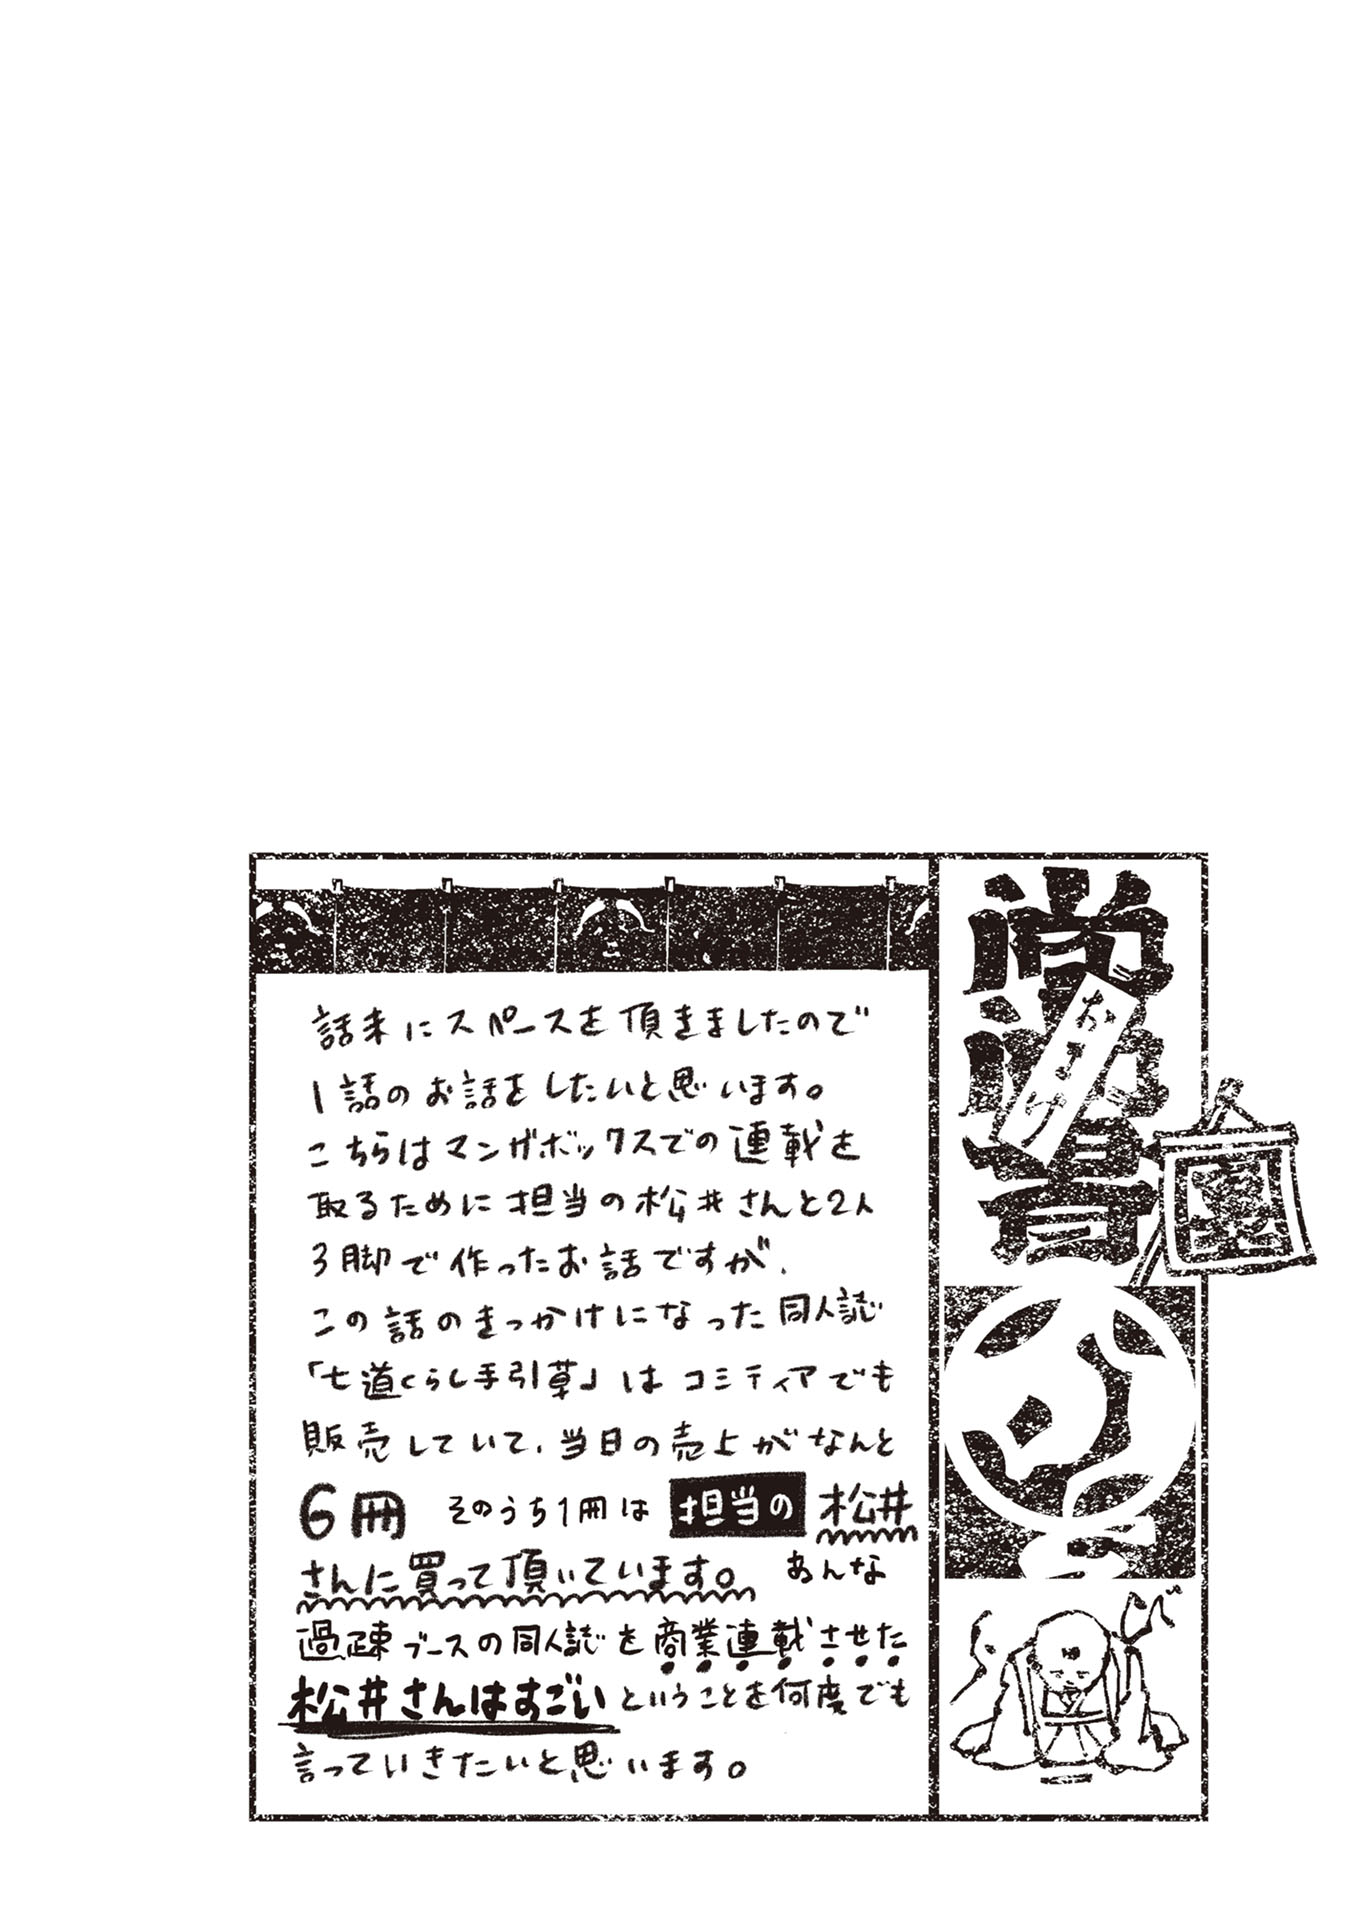 おまけ
話末にスペースを頂きましたので
1話のお話をしたいと思います。
こちらはマンガボックスでの連載を
取るために担当の松井さんと2人
3脚で作ったお話ですが、
この話のきっかけになった同人誌
「七道くらし手引草」はコミティアでも
販売していて、当日の売上がなんと
6冊 そのうち1冊は 担当の 松井
さんに買って頂いています。 あんな
過疎ブースの同人誌を商業連載させた
松井さんはすごいということを何度でも
言っていきたいと思います。